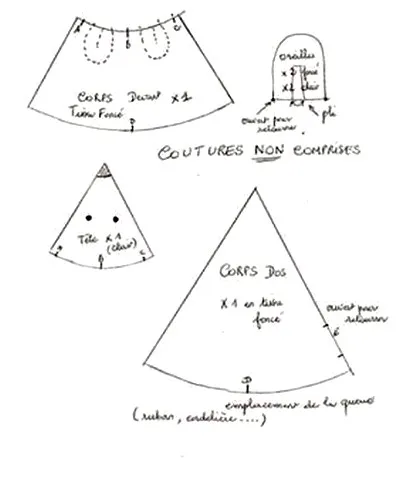 A B C
CORPS Devant x1
Tissu Foncé
D
oreilles
x2 foncé
x2 clair
ouvert pour
retourner
pli
COUTURES NON COMPRISES
Tête x1
(clair)
A B C
CORPS DOS
X 1 en tissu
foncé
ouvert pour
retourner
D
emplacement de la queue
(ruban, cordelière....)